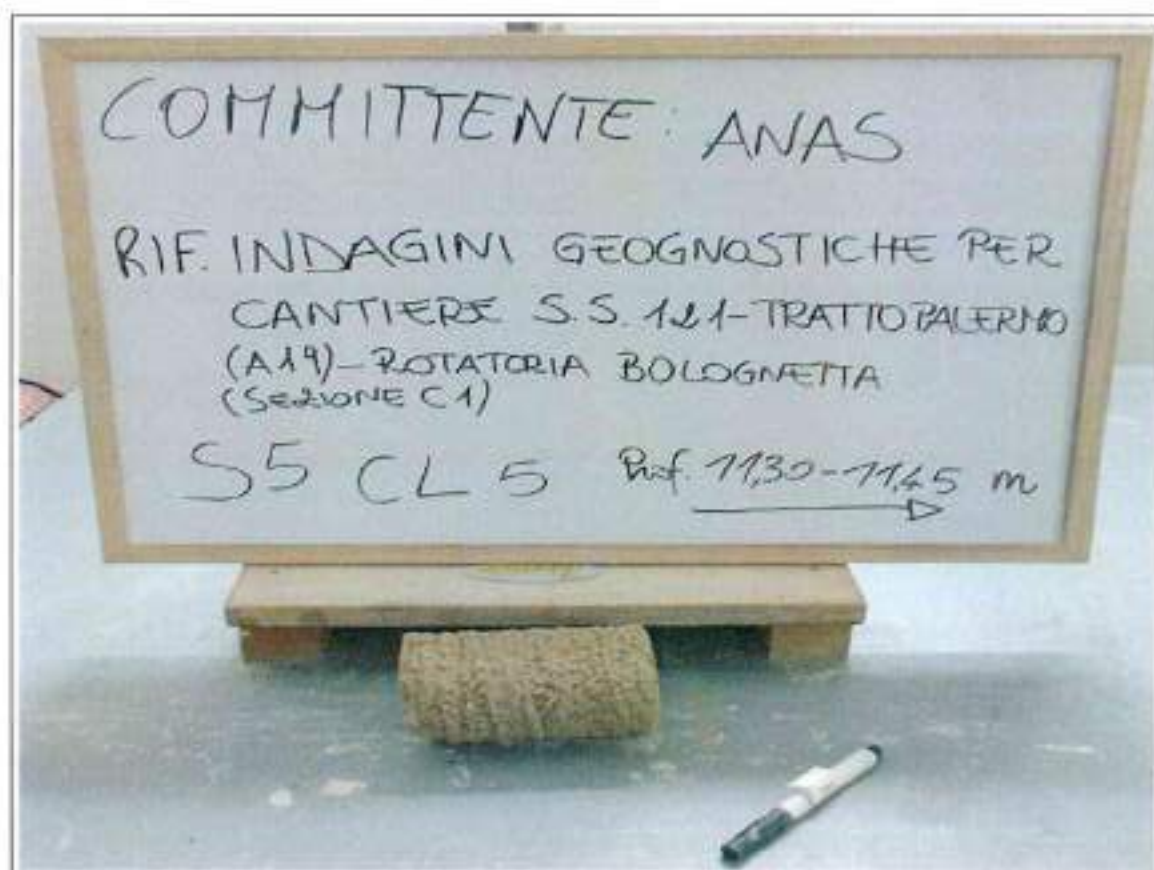 COMMITTENTE: ANAS
RIF. INDAGINI GEOGNOSTICHE PER
CANTIERE S.S. 121-TRATTO PALERMO
(A19)-ROTATORIA BOLOGNETTA
(SEZIONE C1)
S5 CL 5 Prof. 11,30-11,45 m